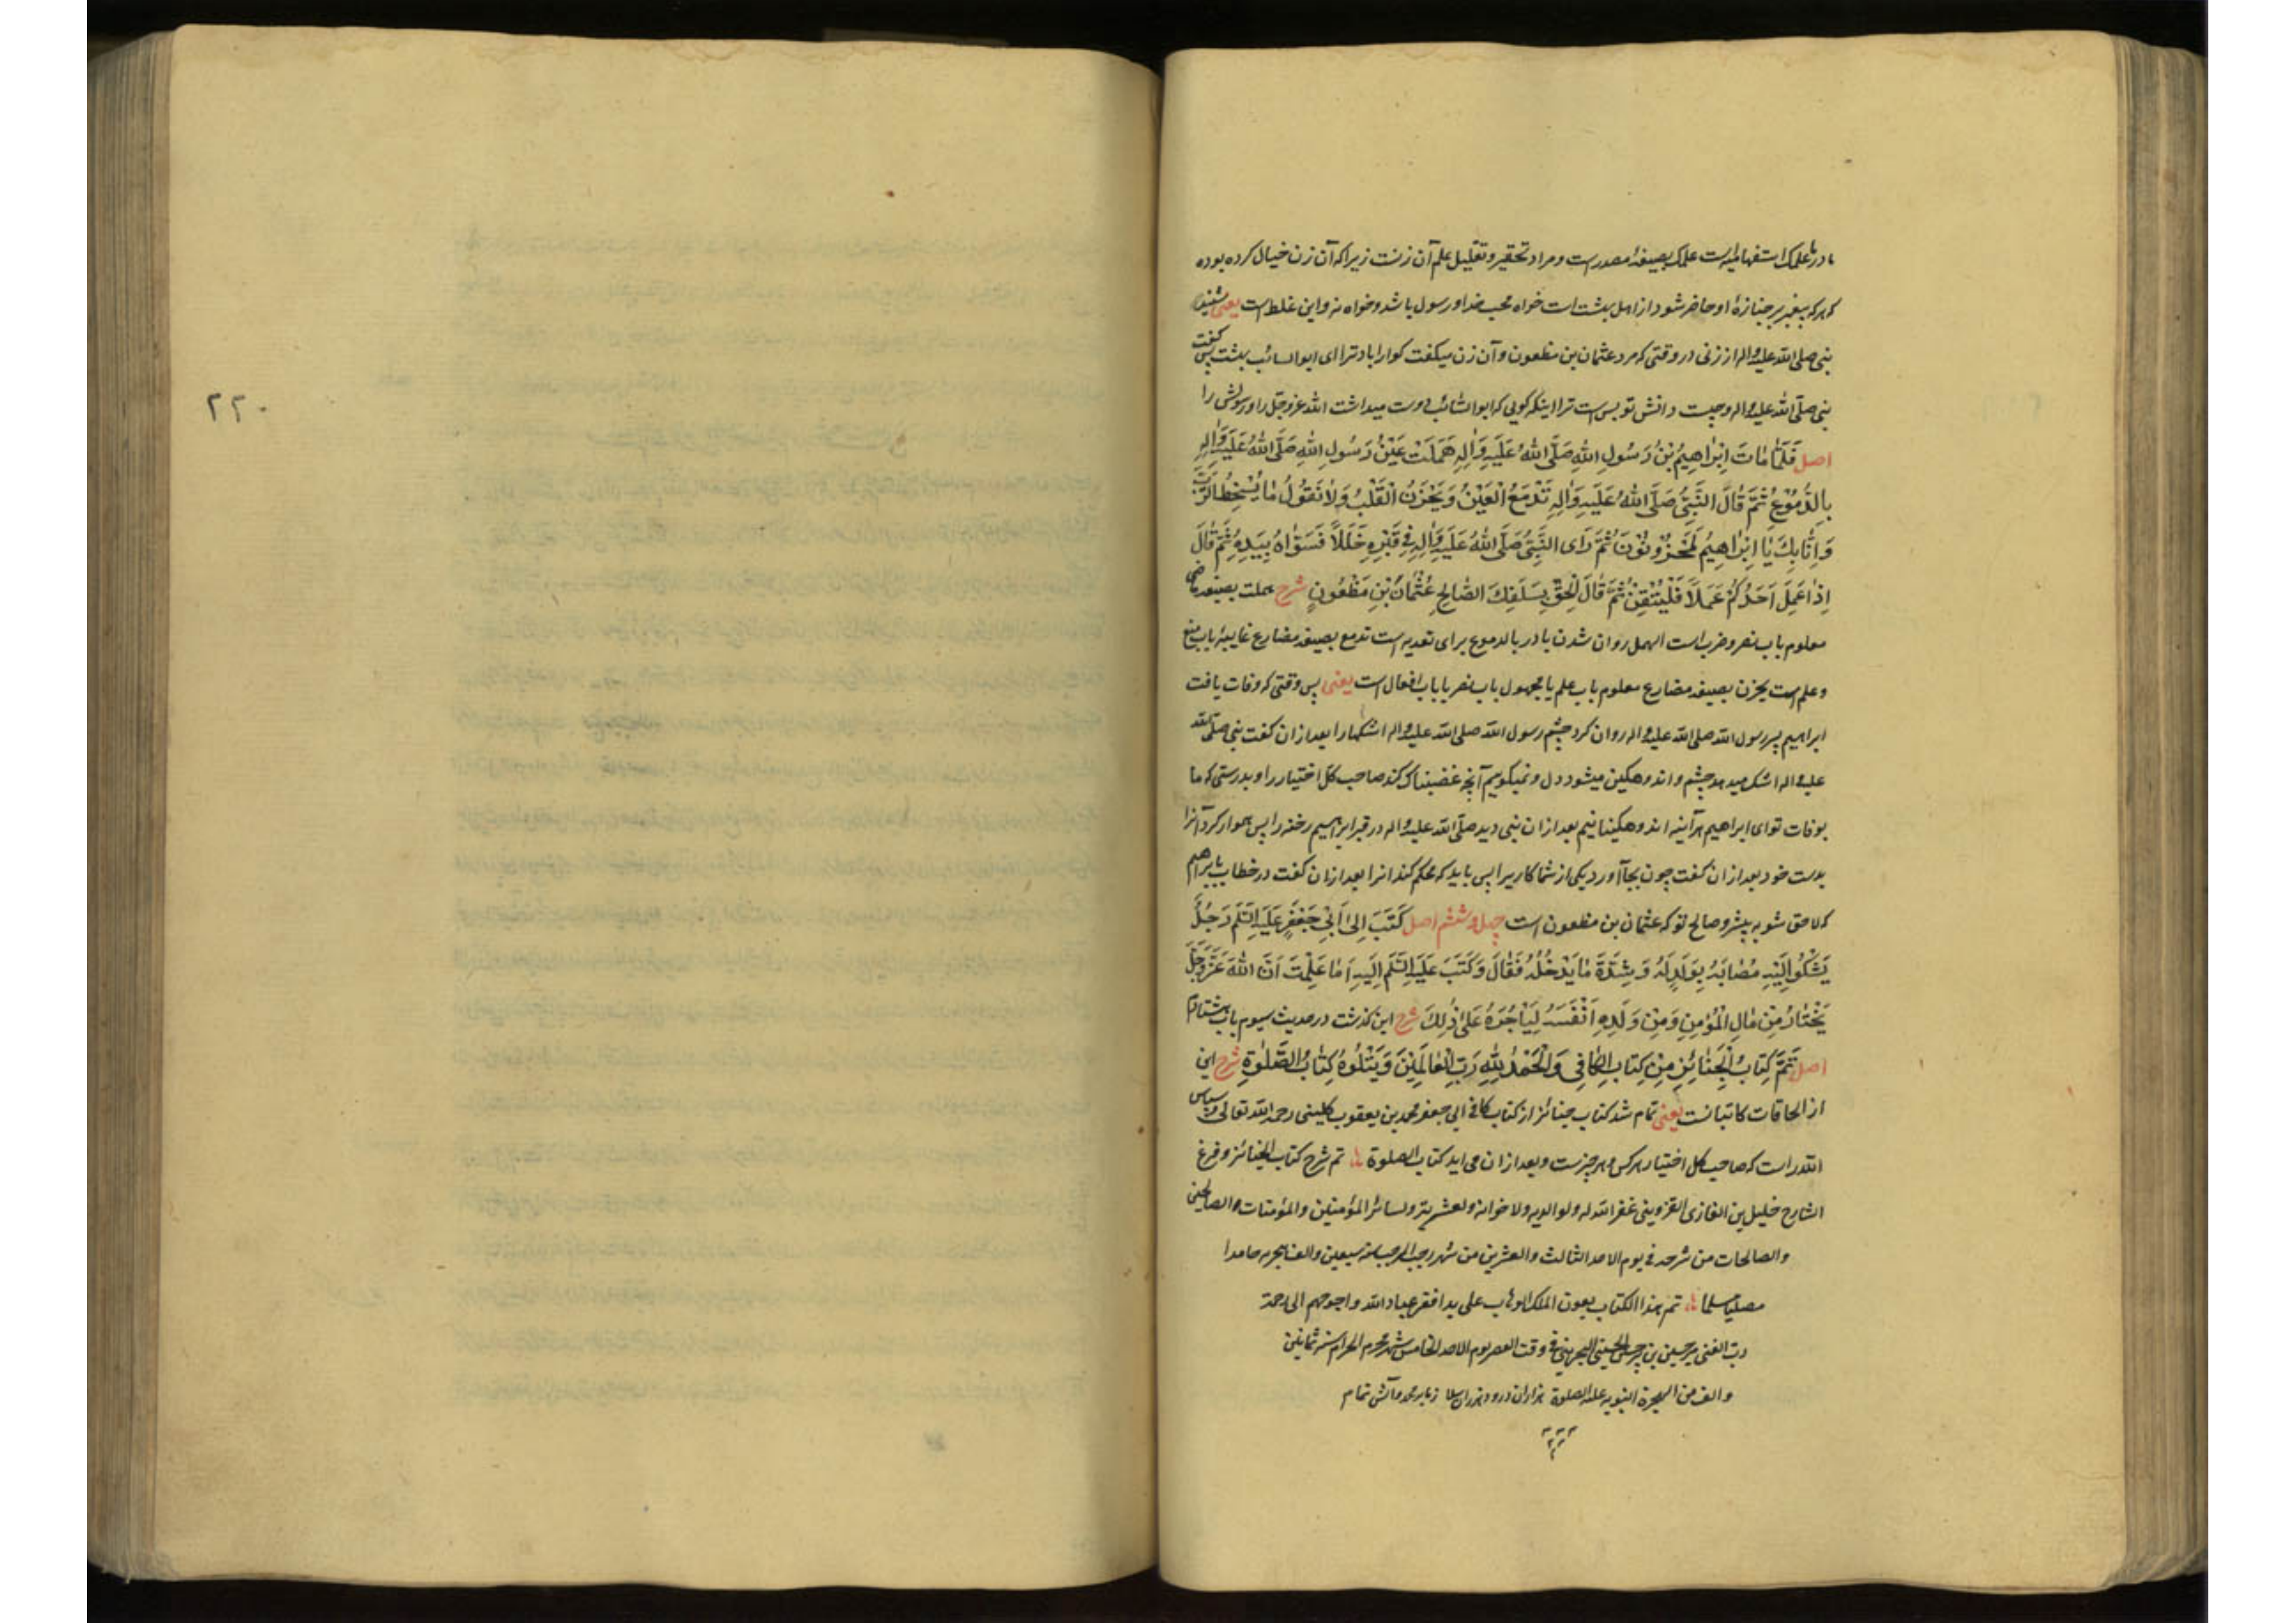 ما در ما علمک استفهامیه است علمک بصیغهٔ مصدر است و مراد تحقیر و تقلیل علم آن زنست زیرا که آن زن خیال کرده بوده
که هر که پیغمبر بر جنازهٔ او حاضر شود از اهل بهشت است خواه محب خدا و رسول باشد و خواه نه و این غلط است یعنی شنید
نبی صلی الله علیه و اله از زنی در وقتی که مرد عثمان بن مظعون و آن زن میکفت کوارا باد ترا ای ابو السائب بهشت پس کفت
نبی صلّی الله علیه و اله و چیست دانش تو بس است ترا اینکه کویی که ابو السّائب دوست میداشت الله عزوجلّ را و رسولش را
اصل فَلَمّا مٰاتَ اِبْرٰاهِیمُ بْنُ رَسُولِ اللهِ صَلَّی اللهُ عَلَیْهِ وَاٰلِهِ هَمَلَتْ عَیْنُ رَسُولِ اللهِ صَلَّی اللهُ عَلَیْهِ وَاٰلِهِ
بِالدُّمُوْعِ ثُمَّ قٰالَ النَّبِیُّ صَلَّی اللهُ عَلَیْهِ وَاٰلِهِ تَدْمَعُ الْعَیْنُ وَیَحْزَنُ الْقَلْبُ وَلاٰ نَقُولُ مٰا یُسْخِطُ الرَّبَّ
وَاِنّٰا بِکَ یٰا اِبْرٰاهِیمُ لَمَحْزُونُوْنَ ثُمَّ رَاَی النَّبِیُّ صَلَّی اللهُ عَلَیْهِ وَاٰلِهِ فِی قَبْرِهِ خَلَلاً فَسَوّٰاهُ بِیَدِهِ ثُمَّ قٰالَ
اِذٰا عَمِلَ اَحَدُکُمْ عَمَلاً فَلْیُتْقِنْ ثُمَّ قٰالَ اِلْحَقْ بِسَلَفِکَ الصّٰالِحِ عُثْمٰانَ بْنِ مَظْعُونٍ شرح هملت بصیغه ماضی
معلوم باب نصر و ضرب است الهمل روان شدن با در بالدموع برای تعدیه است تدمع بصیغه مضارع غایبهٔ باب منع
و علم است یحزن بصیغه مضارع معلوم باب علم یا مجهول باب نصر یا باب افعال است یعنی پس وقتی که وفات یافت
ابراهیم پسر رسول الله صلی الله علیه و اله روان کرد چشم رسول الله صلی الله علیه و اله اشکها را بعد از ان کفت نبی صلّی الله
علیه و اله اشک میدهد چشم و اندوهکین میشود دل و نمیکوییم آنچه غضبناک کند صاحب کلّ اختیار را و بدرستی که ما
بوفات تو ای ابراهیم هرآینه اندوهکینانیم بعد از ان نبی دید صلّی الله علیه و اله در قبر ابراهیم رخنه را پس هموار کرد آنرا
بدست خود بعد از ان کفت چون بجا آورد یکی از شما کاریرا پس باید که محکم کند انرا بعد از ان کفت در خطاب با براهیم
که لاحق شو به پیشرو صالح تو که عثمان بن مظعون است چهل و ششم اصل کَتَبَ اِلیٰ اَبِی جَعْفَرٍ عَلَیْهِ السَّلَم رَجُلٌ
یَشْکُوا اِلَیْهِ مُصٰابَهُ بِوَلَدٍ لَهُ وَشِدَّةَ مٰا یَدْخُلُهُ فَقٰالَ وَکَتَبَ عَلَیْهِ السَّلَم اِلَیْهِ اَمٰا عَلِمْتَ اَنَّ اللهَ عَزَّوَجَلَّ
یَخْتٰارُ مِنْ مٰالِ الْمُؤْمِنِ وَمِنْ وَلَدِهِ اَنْفَسَهُ لِیَأْجُرَهُ عَلیٰ ذٰلِکَ شرح این کذشت در حدیث سیوم باب هشتادم
اصل تَمَّ کِتٰابُ الْجَنٰائِزِ مِنْ کِتٰابِ الْکٰافِی وَالْحَمْدُ لِلّٰهِ رَبِّ الْعٰالَمِیْنَ وَیَتْلُوهُ کِتٰابُ الصَّلوٰةِ شرح این
از الحاقات کاتبانست یعنی تمام شد کتاب جنائز از کتاب کافی ابی جعفر محمد بن یعقوب کلینی رحمه الله تعالی و سپاس
الله راست که صاحب کل اختیار هر کس و هر چیزست و بعد از ان می اید کتاب الصلوة تم شرح کتاب الجنائز و فرغ
الشارح خلیل بن الغازی القزوینی غفر الله له و لوالدیه و لاخوانه و لعشیرته و لسائر المؤمنین والمؤمنات والصالحین
والصالحات من شرحه فی یوم الاحد الثالث والعشرین من شهر رجب المرجب سنه سبعین والف هجریه حامدا
مصلیا مسلما تم هذا الکتاب بعون الملک الوهاب علی ید افقر عباد الله و احوجهم الی رحمة
ربه الغنی میرحسین بن الحسینی فی وقت العصر یوم الاحد الخامس شهر محرم الحرام سنه ثمانین
والف من الهجرة النبویه علیه الصلوة هزاران درود هزاران سلام ز ما بر محمد و آلش تمام
۲۲۰